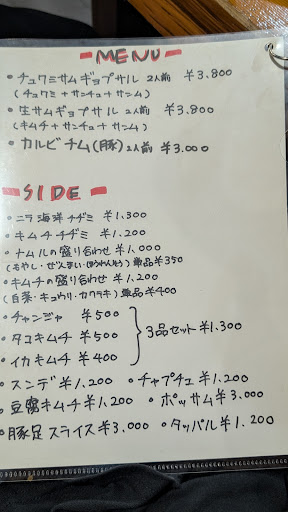 MENU
・チュクミサムギョプサル 2人前 ¥3.800
(チュクミ+サンチュ+サンム)
・生サムギョプサル 2人前 ¥3.800
(キムチ+サンチュ+サンム)
・カルビチム(豚)2人前 ¥3.000
SIDE
・ニラ海洋チヂミ ¥1.300
・キムチチヂミ ¥1.200
・ナムルの盛り合わせ ¥1.000
(もやし・ぜんまい・ほうれんそう)単品¥350
・キムチの盛り合わせ ¥1.200
(白菜・キュウリ・カクテキ)単品¥400
・チャンジャ ¥500
・タコキムチ ¥500 3品セット¥1.300
・イカキムチ ¥400
・スンデ ¥1.200 ・チャプチェ¥1.200
・豆腐キムチ¥1.200 ・ポッサム¥3.000
・豚足スライス¥3.000 ・タッパル¥1.200